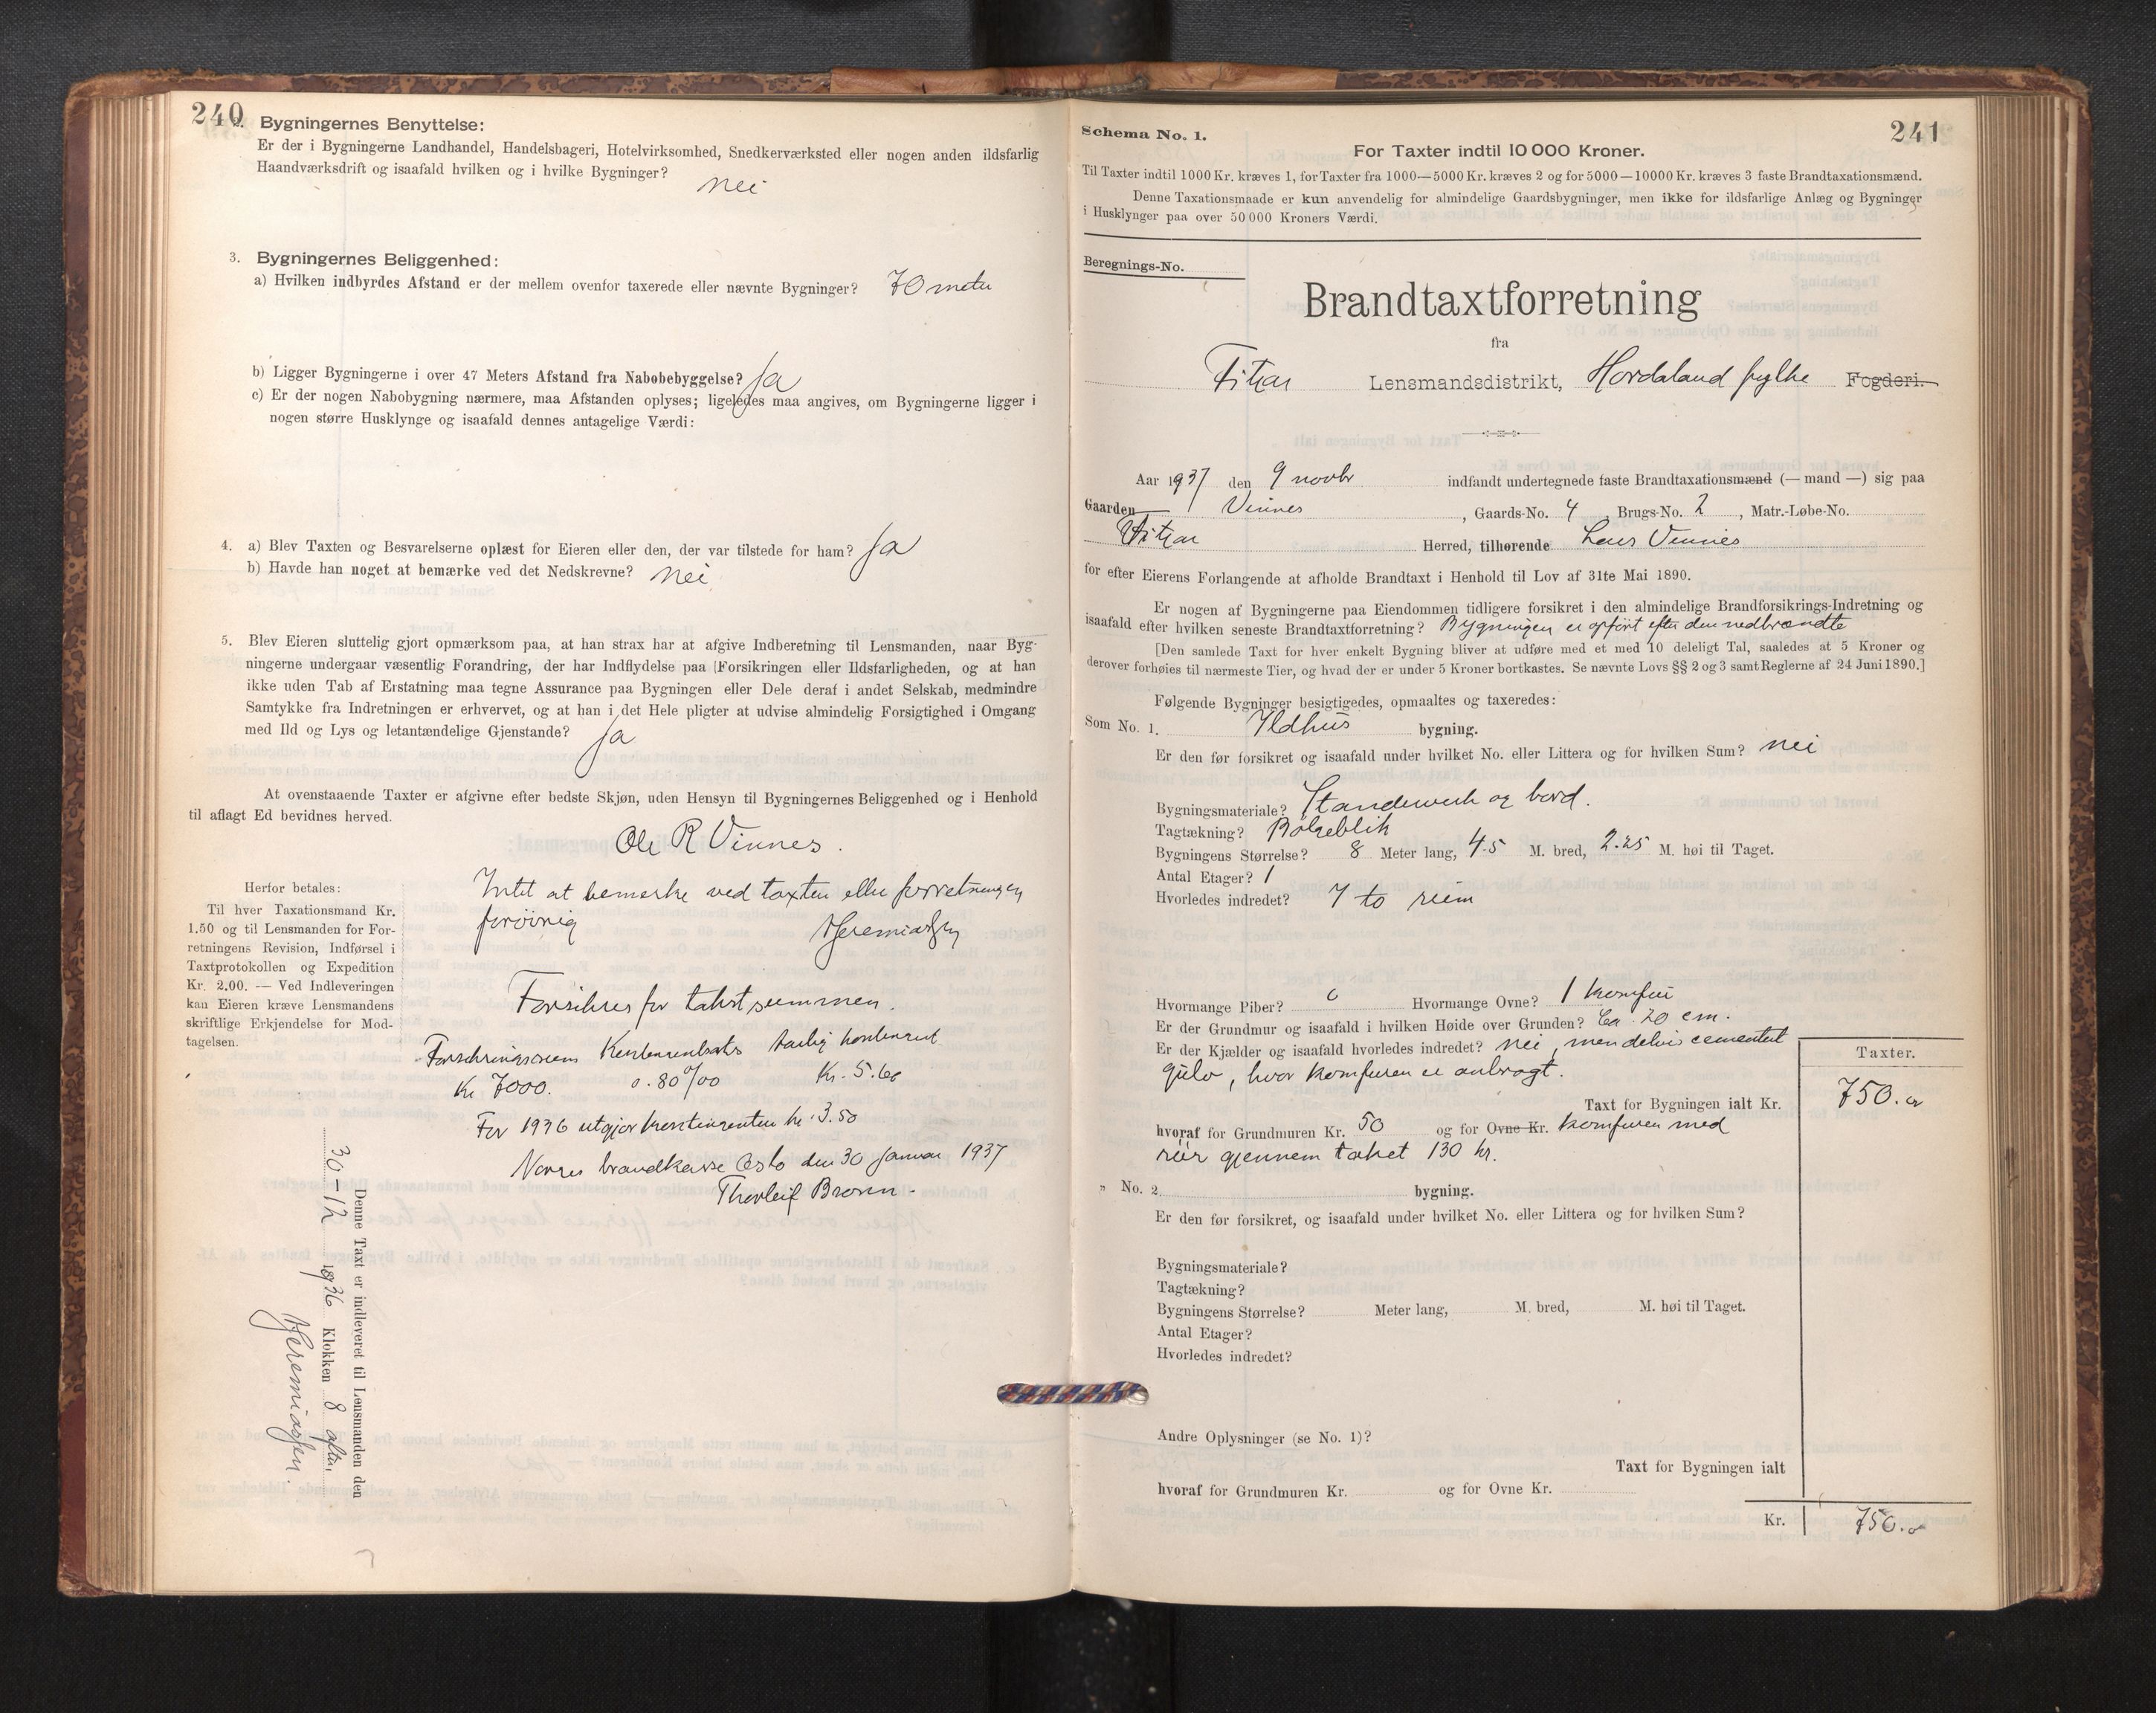 240
2. Bygningernes Benyttelse:
Er der i Bygningerne Landhandel, Handelsbageri, Hotelvirksomhed, Snedkerværksted eller nogen anden ildsfarlig
Haandværksdrift og isaafald hvilken og i hvilke Bygninger?
nei
3. Bygningernes Beliggenhed:
a) Hvilken indbyrdes Afstand er der mellem ovenfor taxerede eller nævnte Bygninger? 70 meter
b) Ligger Bygningerne i over 47 Meters Afstand fra Nabobebyggelse? Ja
c) Er der nogen Nabobygning nærmere, maa Afstanden oplyses; ligeledes maa angives, om Bygningerne ligger i
nogen større Husklynge og isaafald dennes antagelige Værdi:
4. a) Blev Taxten og Besvarelserne oplæst for Eieren eller den, der var tilstede for ham? Ja
b) Havde han noget at bemærke ved det Nedskrevne? nei
5. Blev Eieren sluttelig gjort opmærksom paa, at han strax har at afgive Indberetning til Lensmanden, naar Byg-
ningerne undergaar væsentlig Forandring, der har Indflydelse paa Forsikringen eller Ildsfarligheden, og at han
ikke uden Tab af Erstatning maa tegne Assurance paa Bygningen eller Dele deraf i andet Selskab, medmindre
Samtykke fra Indretningen er erhvervet, og at han i det Hele pligter at udvise almindelig Forsigtighed i Omgang
med Ild og Lys og letantændelige Gjenstande? Ja
At ovenstaaende Taxter er afgivne efter bedste Skjøn, uden Hensyn til Bygningernes Beliggenhed og i Henhold
til aflagt Ed bevidnes herved.
Ole R Vinnes.
Intet at bemerke ved taxten eller forretningen
forøvrig
Jeremiassen
Herfor betales:
Til hver Taxationsmand Kr.
1.50 og til Lensmanden for For-
retningens Revision, Indførsel i
Taxtprotokollen og Expedition
Kr. 2.00. — Ved Indleveringen
kan Eieren kræve Lensmandens
skriftlige Erkjendelse for Mod-
tagelsen.
Forsikres for takstsummen.
Forsikringssum Kontingentsats Aarlig kontingent
Kr. 7000. 0.80 0/00 Kr. 5.60
For 1936 utgjør kontingenten kr. 3.50
Norges brandkasse Oslo den 30 Januar 1937
Thorleif Broun.
Denne Taxt er indleveret til Lensmanden den
30-12 1936 Klokken 8 aften
Jeremiassen.
241
Schema No. 1.
For Taxter indtil 10 000 Kroner.
Til Taxter indtil 1000 Kr. kræves 1, for Taxter fra 1000—5000 Kr. kræves 2 og for 5000—10000 Kr. kræves 3 faste Brandtaxationsmænd.
Denne Taxationsmaade er kun anvendelig for almindelige Gaardsbygninger, men ikke for ildsfarlige Anlæg og Bygninger
i Husklynger paa over 50 000 Kroners Værdi.
Beregnings-No.
Brandtaxtforretning
fra
Fitjar Lensmandsdistrikt, Hordaland fylke Fogderi.
Aar 1937 den 9 novbr indfandt undertegnede faste Brandtaxationsmænd (— mand —) sig paa
Gaarden Vinnes, Gaards-No. 4, Brugs-No. 2, Matr.-Løbe-No.
Fitjar Herred, tilhørende Lars Vinnes
for efter Eierens Forlangende at afholde Brandtaxt i Henhold til Lov af 31te Mai 1890.
Er nogen af Bygningerne paa Eiendommen tidligere forsikret i den almindelige Brandforsikrings-Indretning og
isaafald efter hvilken seneste Brandtaxtforretning? Bygningen er opført efter den nedbrændte
[Den samlede Taxt for hver enkelt Bygning bliver at udføre med et med 10 deleligt Tal, saaledes at 5 Kroner og
derover forhøies til nærmeste Tier, og hvad der er under 5 Kroner bortkastes. Se nævnte Lovs §§ 2 og 3 samt Reglerne af 24 Juni 1890.]
Følgende Bygninger besigtigedes, opmaaltes og taxeredes:
Som No. 1. Ildhus bygning.
Er den før forsikret og isaafald under hvilket No. eller Littera og for hvilken Sum? nei
Bygningsmateriale? Standerverk og bord.
Tagtækning? Bølgeblik
Bygningens Størrelse? 8 Meter lang, 4.5 M. bred, 2.25 M. høi til Taget.
Antal Etager? 1
Hvorledes indredet? I to rum
Hvormange Piber? 0 Hvormange Ovne? 1 komfur
Er der Grundmur og isaafald i hvilken Høide over Grunden? Ca. 20 cm.
Er der Kjælder og isaafald hvorledes indredet? nei, men delvis cementert
gulv, hvor komfuren er anbragt.
Taxter.
Taxt for Bygningen ialt Kr. 750.-
hvoraf for Grundmuren Kr. 50 og for Ovne Kr. komfuren med
rør gjennem taket 130 kr.
" No. 2. bygning.
Er den før forsikret, og isaafald under hvilket No. eller Littera og for hvilken Sum?
Bygningsmateriale?
Tagtækning?
Bygningens Størrelse? Meter lang, M. bred, M. høi til Taget.
Antal Etager?
Hvorledes indredet?
Andre Oplysninger (se No. 1)?
Taxt for Bygningen ialt
hvoraf for Grundmuren Kr. og for Ovne Kr.
Kr. 750.-